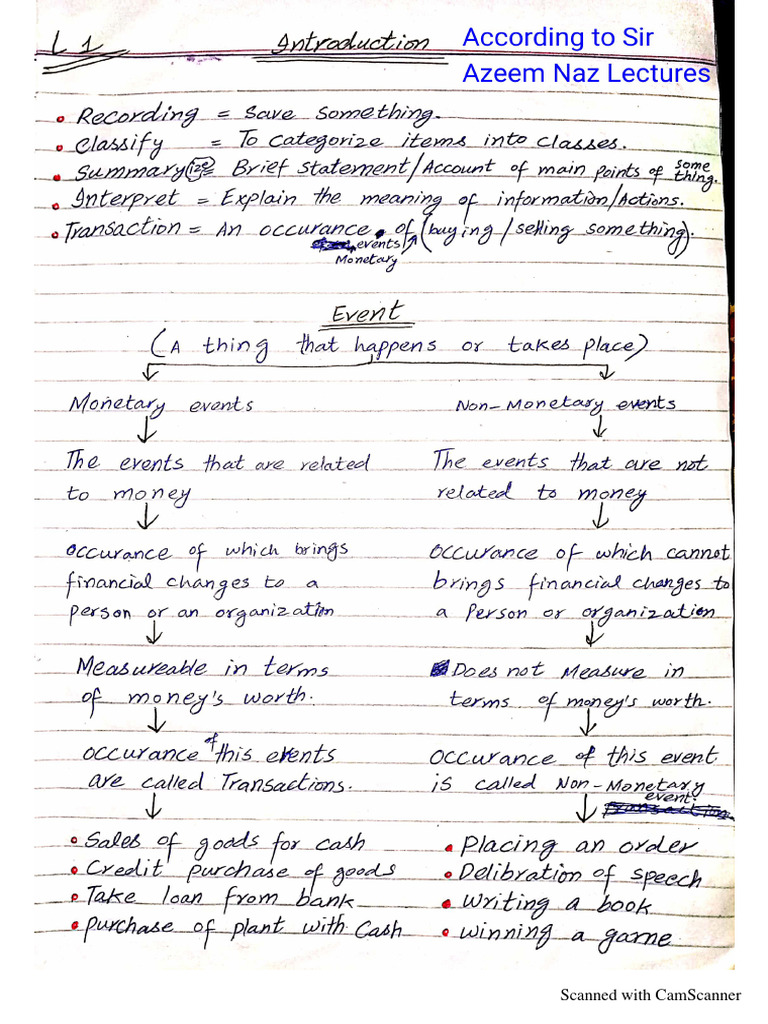 L 1
Introduction
According to Sir
Azeem Naz Lectures
• Recording = Save something.
• Classify = To categorize items into classes.
• Summary(ize) = Brief statement/Account of main points of some thing.
• Interpret = Explain the meaning of information/Actions.
• Transaction = An occurance of (buying/selling something).
events
Monetary
Event
(A thing that happens or takes place)
Monetary events
The events that are related
to money
Occurance of which brings
financial changes to a
person or an organization
Measureable in terms
of money's worth.
occurance of this events
are called Transactions.
• Sales of goods for cash
• Credit purchase of goods
• Take loan from bank
• purchase of plant with Cash
Non-Monetary events
The events that are not
related to money
Occurance of which cannot
brings financial changes to
a Person or organization
Does not Measure in
terms of money's worth.
Occurance of this event
is called Non-Monetary
event.
• Placing an order
• Delibration of speech
• Writing a book
• winning a game
Scanned with CamScanner